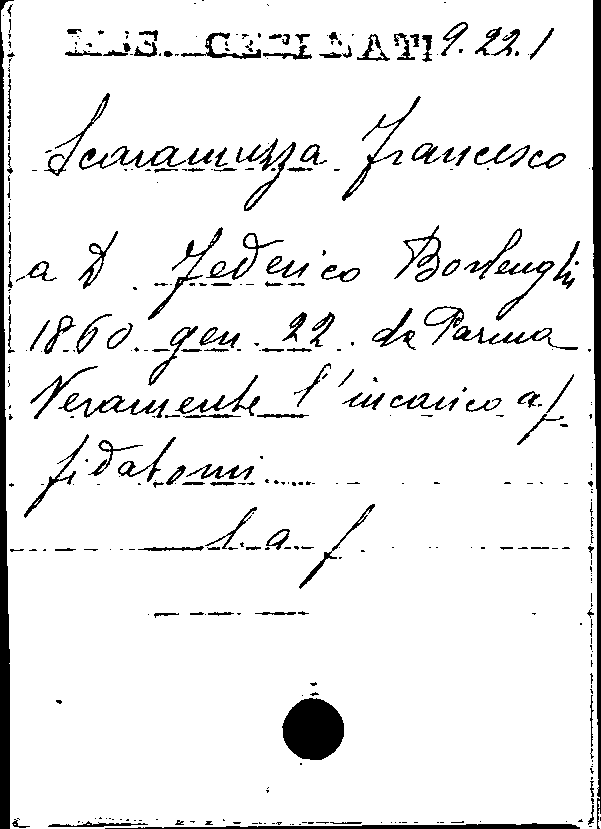 MSS. CEEINATI 9.22.1
Scaramuzza Francesco
a D. Federico Borlenghi
1860 gen. 22. da Parma
Veramente l'incarico af-
fidatomi
l. a f